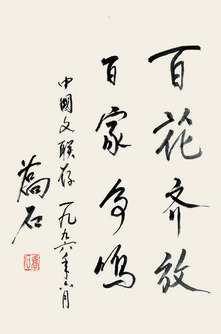 百花齐放
百家争鸣
中国文联存 一九九六年六月
乔石